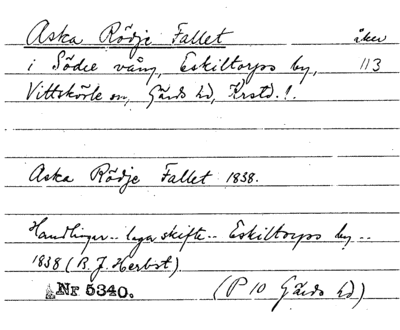 Aska Rödje Fallet åker
i Södre vång, Eskiltorps by, 113
Vittskövle sn, Gärds hd, Krstd. l.
Aska Rödje Fallet 1838.
Handlingar .. laga skifte .. Eskiltorps by ..
1838 (B. J. Herbst)
NR 5340. (P 10 Gärds hd)